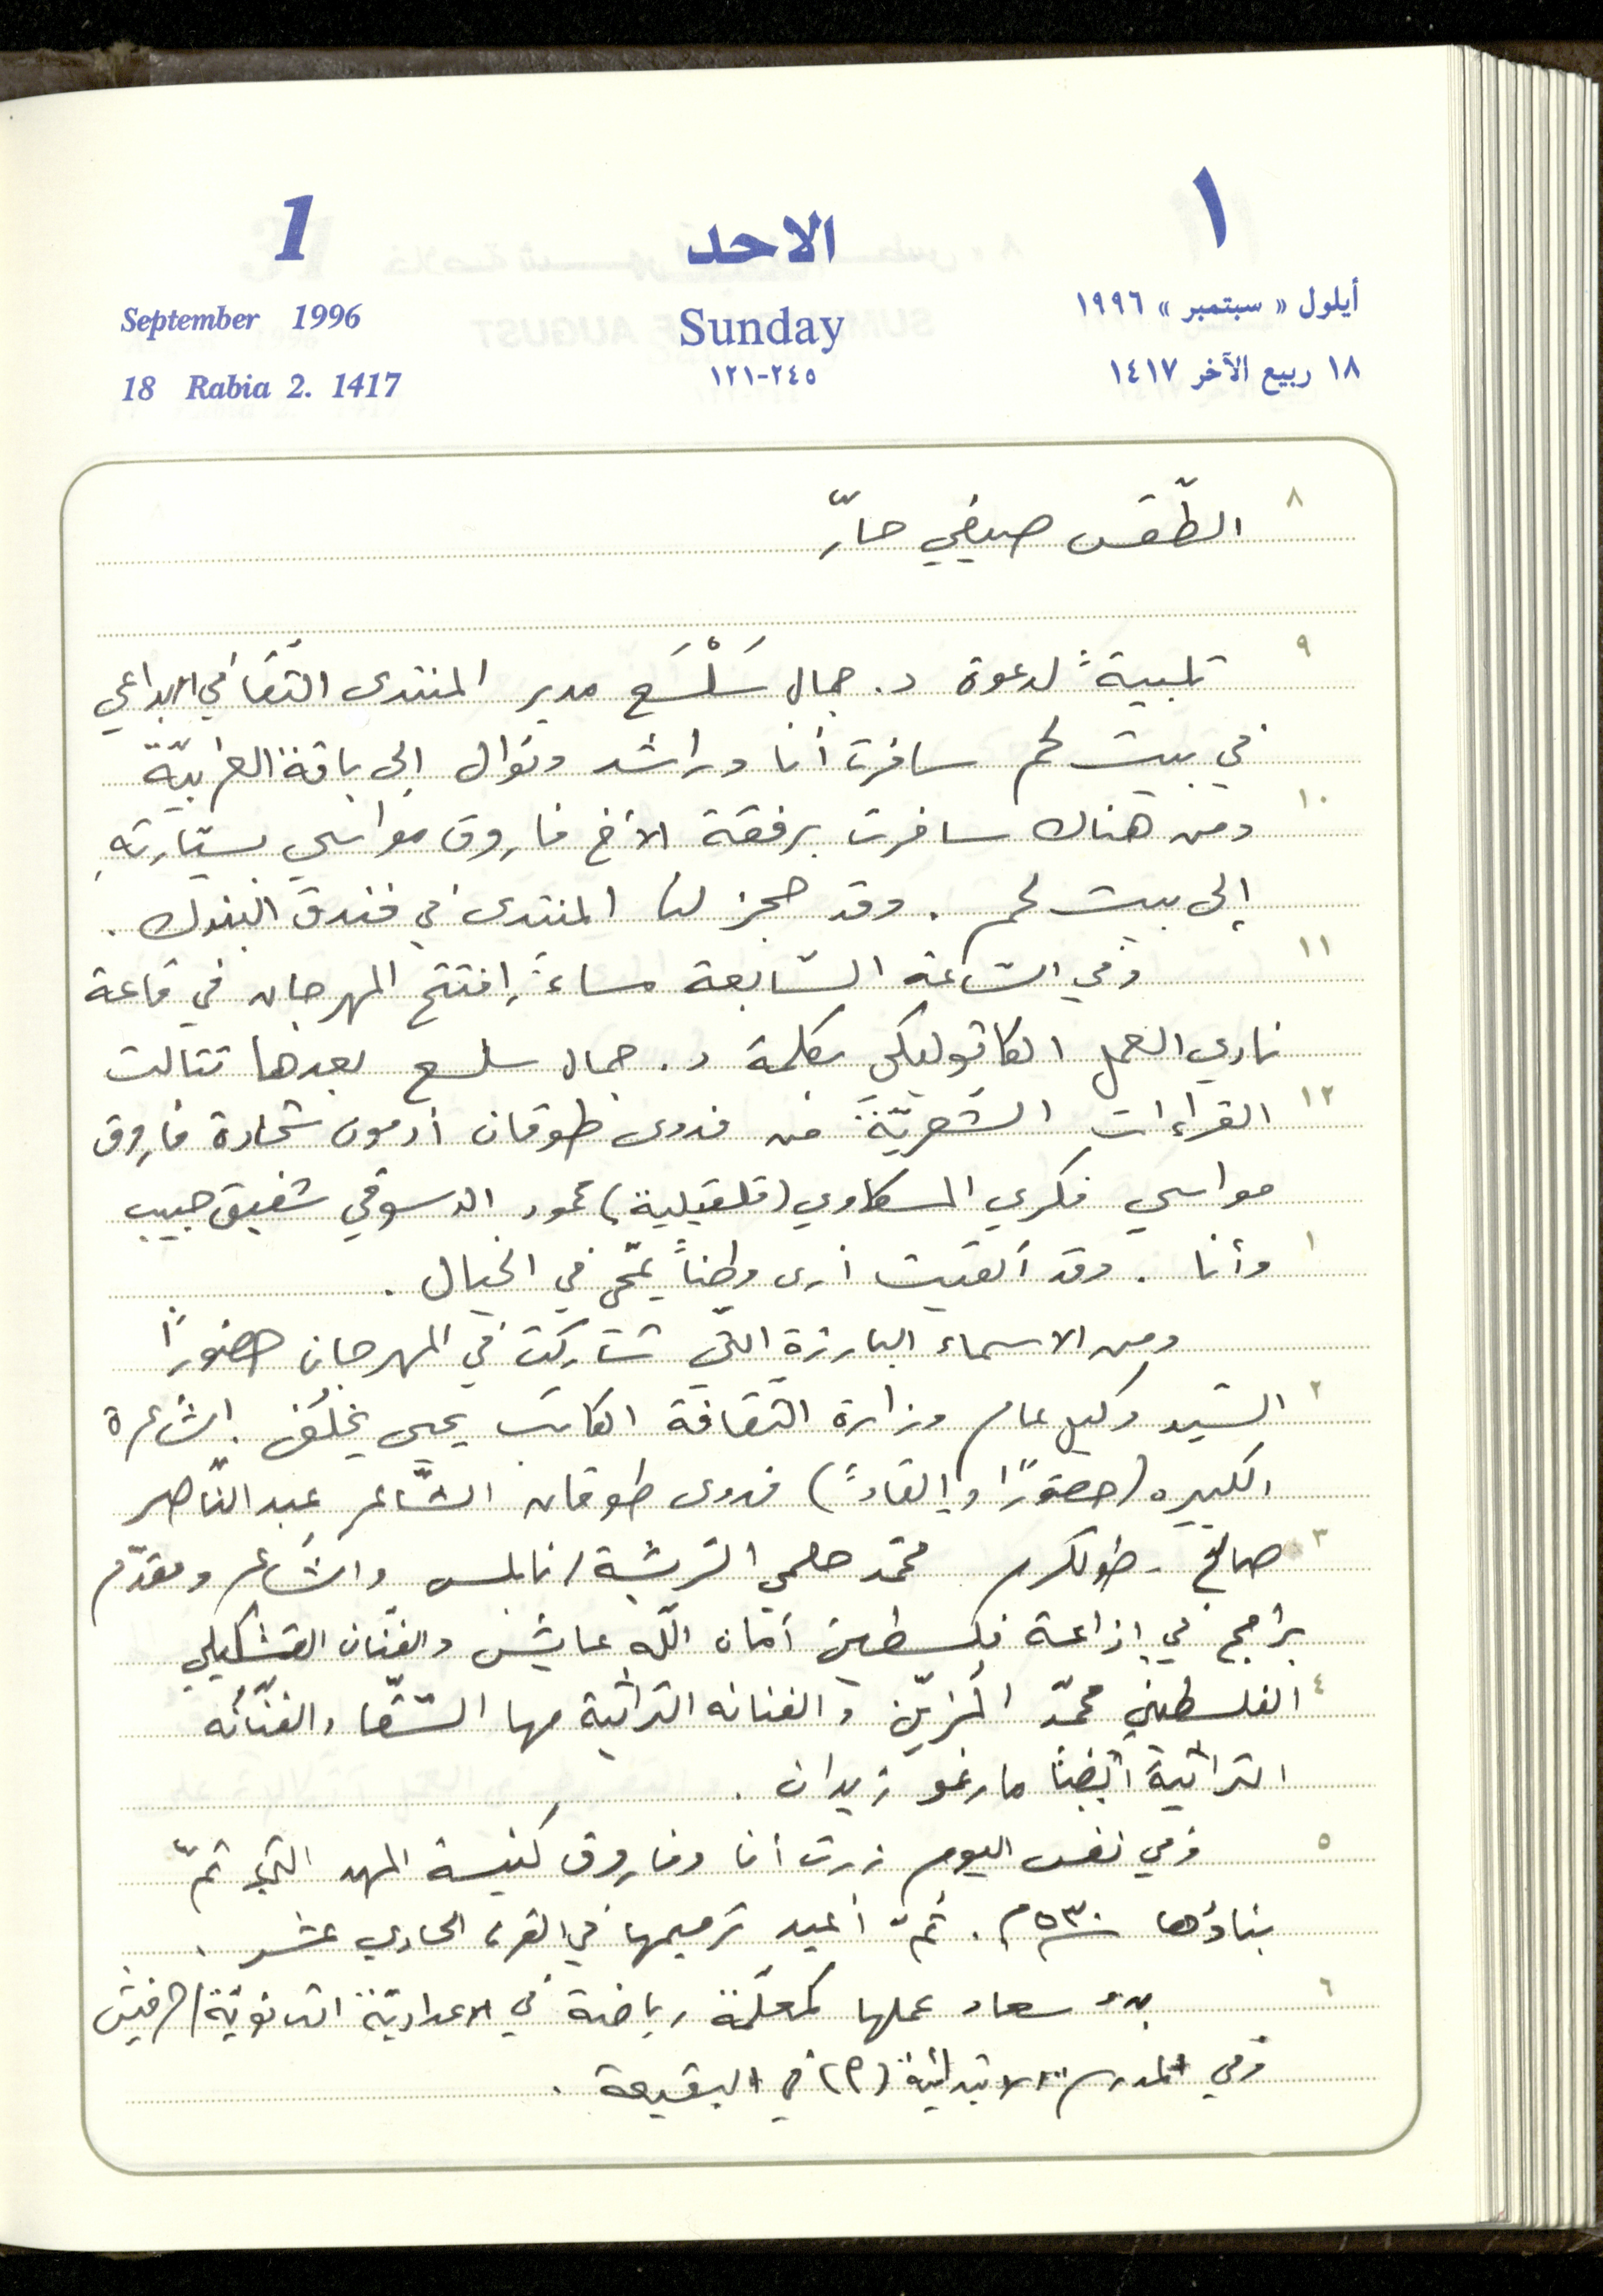 1
الاحد
١
September 1996
Sunday
أيلول « سبتمبر » ١٩٩٦
18 Rabia 2. 1417
٢٤٥-١٢١
١٨ ربيع الآخر ١٤١٧
٨
الطّقس صيفي حارّ
٩
تلبيةً لدعوة د. جمال سَلْسَع مدير المنتدى الثّقافي الإبداعي
في بيت لحم سافرت أنا وراشد ونوال إلى باقة الغربيّة
١٠
ومن هناك سافرت برفقة الأخ فاروق مواسي بسيّارتهِ
إلى بيت لحم . وقد حجز لنا المنتدى في فندق البندك .
١١
وفي السّاعة السّابعة مساءً إفتتح المهرجان في قاعة
نادي العمل الكاثوليكي بكلمة د. جمال سلسع بعدها تتالت
١٢
القراءات الشّعريّة من فدوى طوقان أدمون شحادة فاروق
مواسي فكري المسكاوي (قلقيلية) محمود الدسوقي شفيق حبيب
١
وأنا . وقد ألقيت أرى وطناً يمّحي في الخيال .
ومن الاسماء البارزة التي شاركت في المهرجان حضوراً
٢
السّيد وكيل عام وزارة الثّقافة الكاتب يحيى يخلف . الشّاعرة
الكبيره (حضورًا وإلقاءً) فدوى طوقان الشّاعر عبد النّاصر
٣
صالح - طولكرم محمّد حلمي الرّيشة / نابلس والشّاعر ومقدّم
برامج في إذاعة فلسطين أمان اللّه عايش والفنّان التشكيلي
٤
الفلسطيني محمّد المُزيّن والفنانه التراثية مها السّقّا والفنّانه
التراثية أيضًا مارغو زيدان .
٥
وفي نفس اليوم زرت أنا وفاروق كنيسة المهد التي تمّ
بناؤها ٥٣٠م . ثمّ أعيد ترميمها في القرن الحادي عشر .
٦
بدء سعاد عملها كمعلّمة رياضة في الاعداديّة الثانويّة / حرفيش
وفي المدرسة الابتدائية (م) في البقيعة .